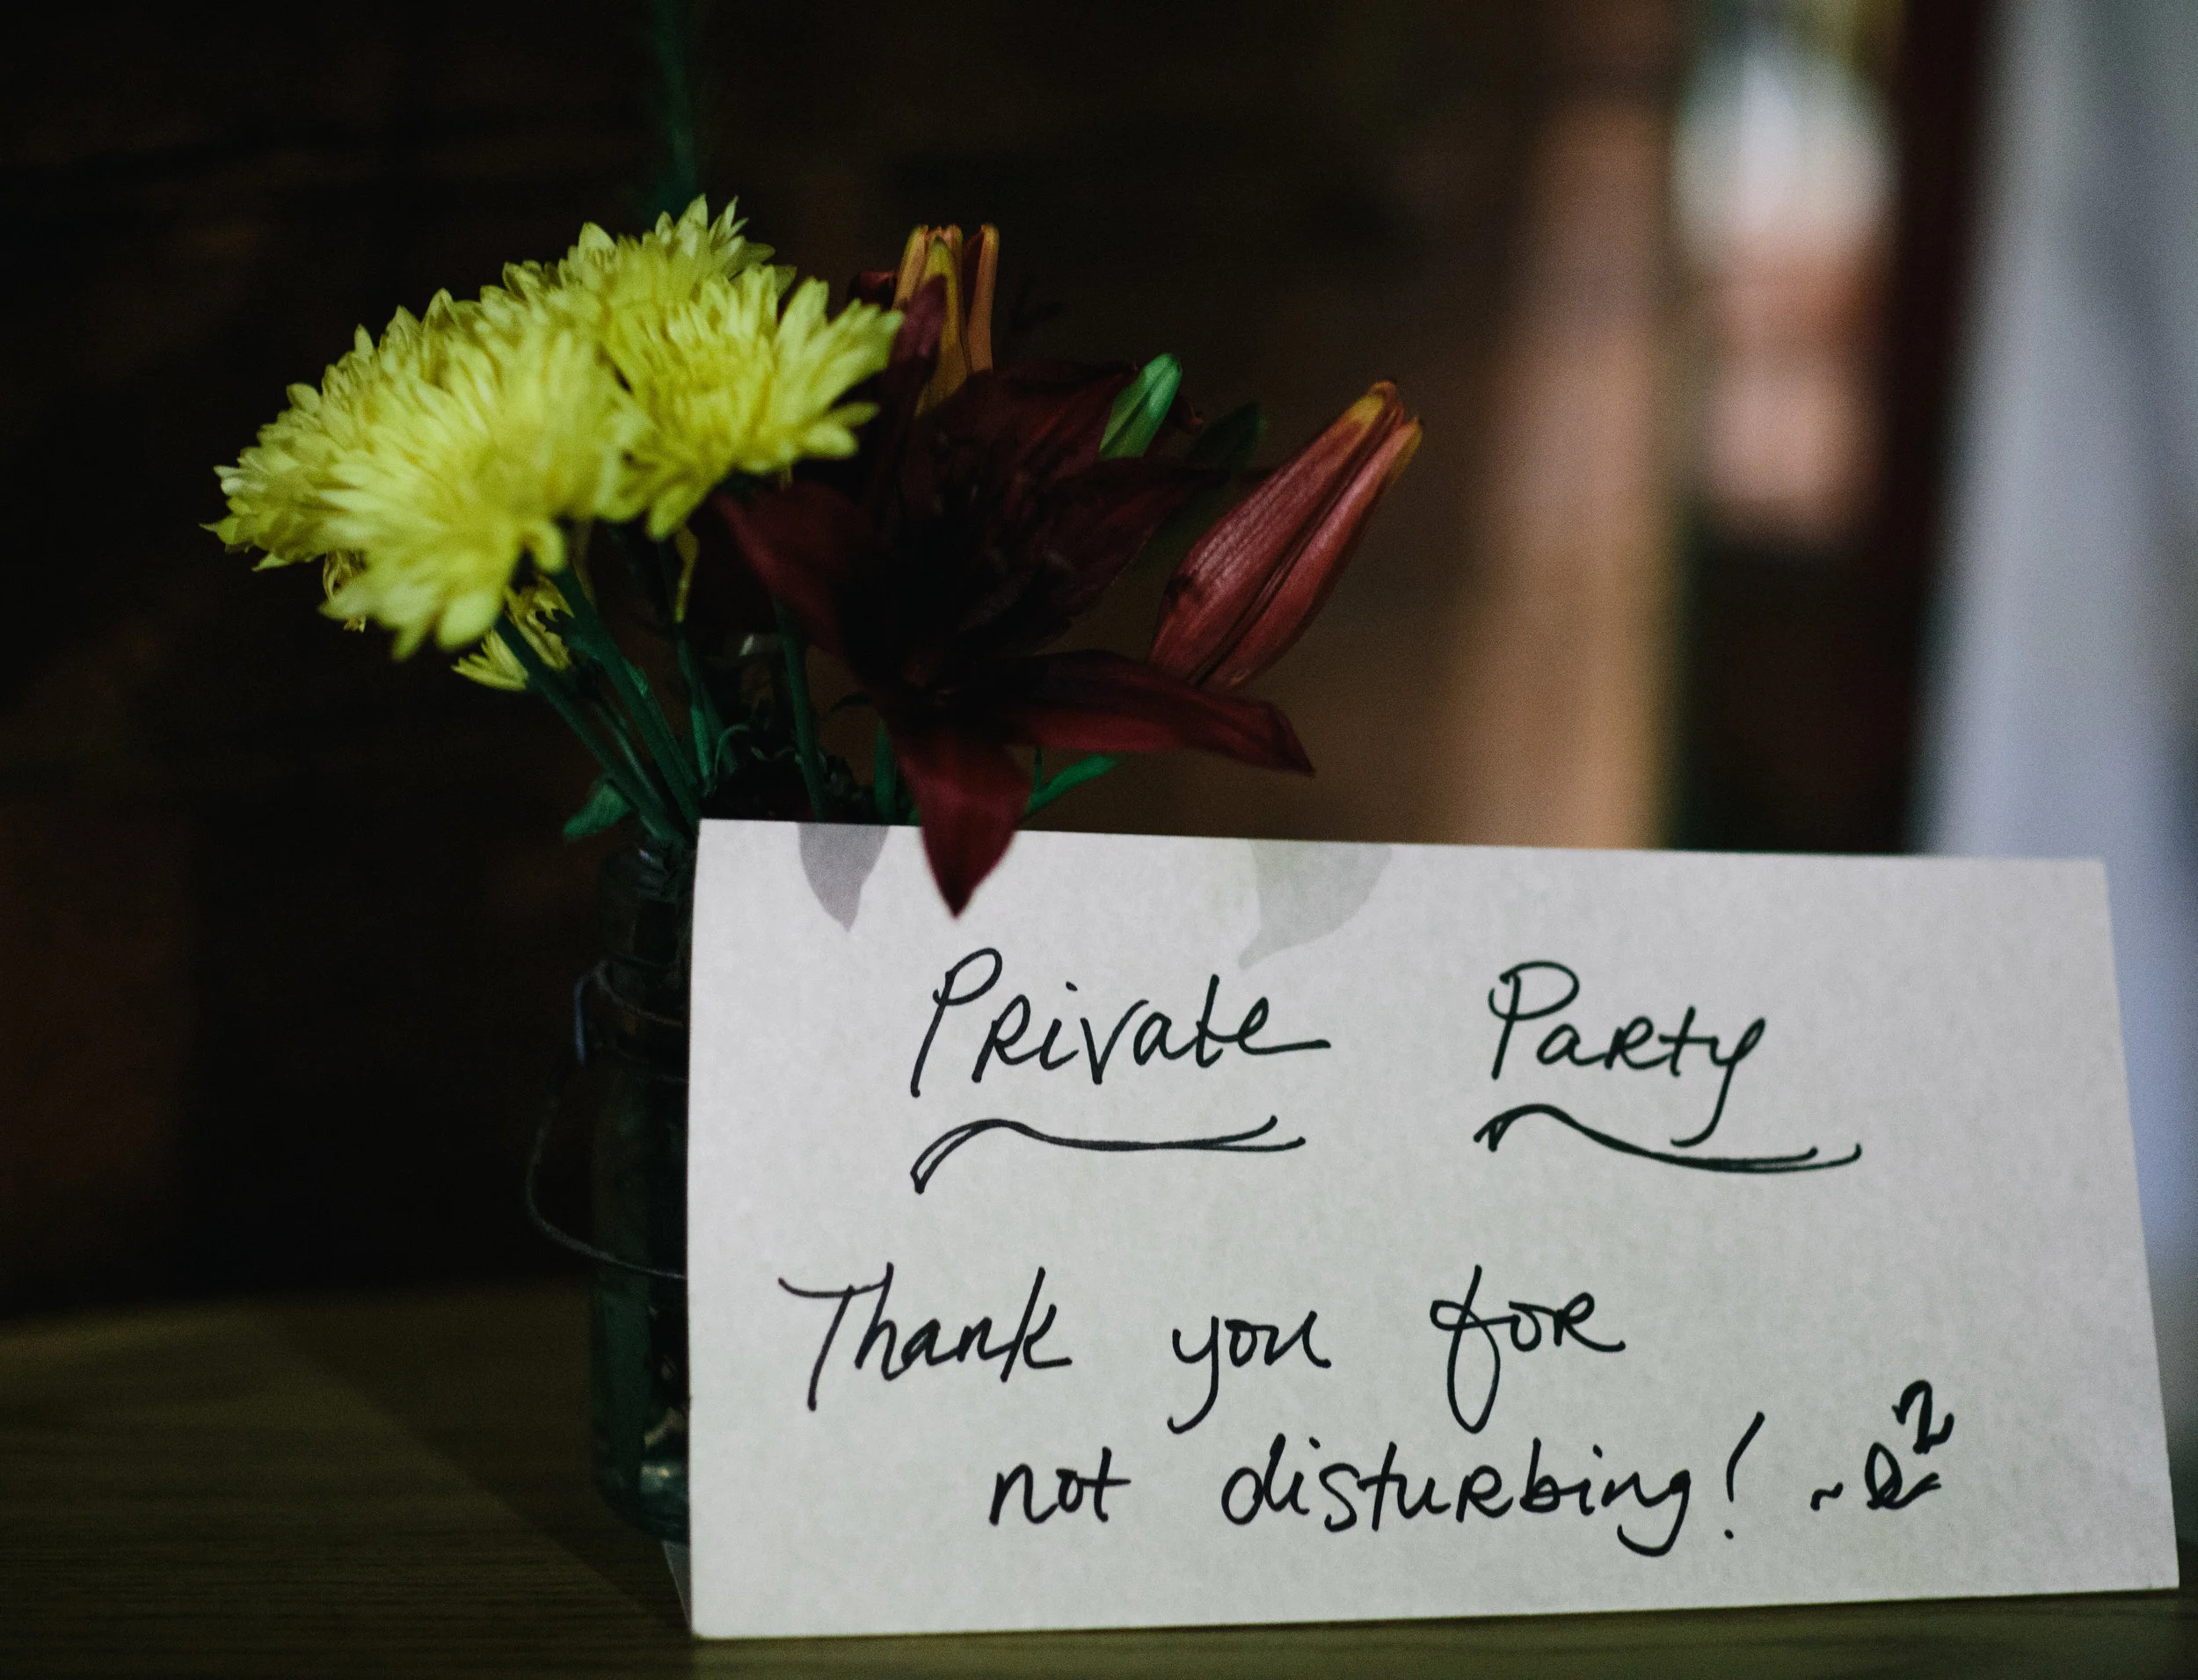 Private Party
Thank you for
not disturbing!